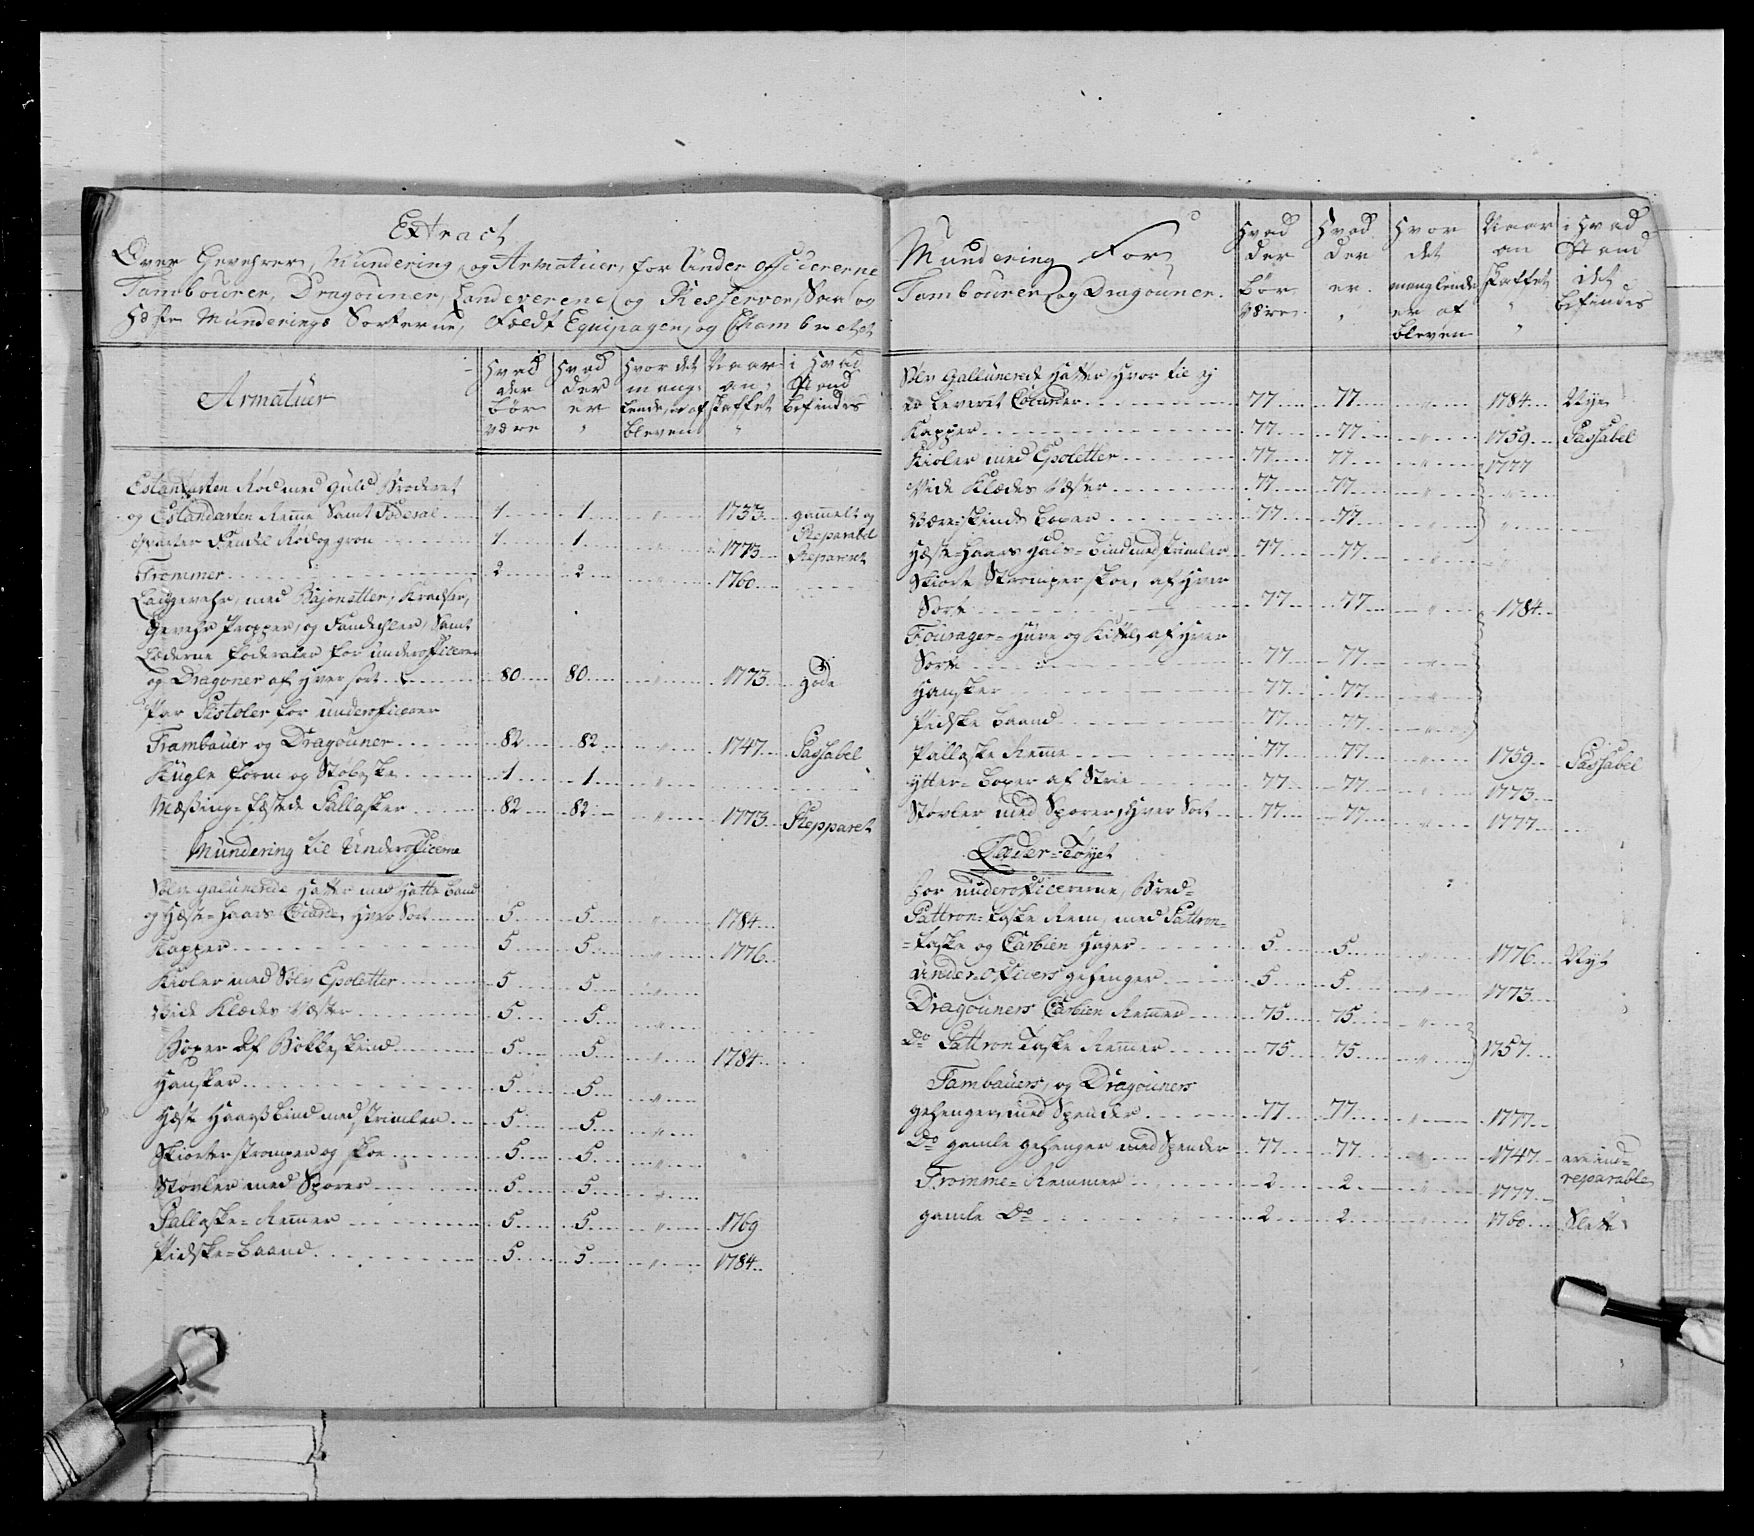 Extract
Over Gevehrer, Mundering og Armatuer, for Under Officererne
Tambourer, Dragouner, Landeverne og Reserver, Saa og
Heste Munderings Sorterne, Feldt Equipagen, og Chambredet
Armatuer
Hvad der bør være
Hvad der er
Hvor det manglende er af bleven
Naar anskaffet
i Hvad Stand befindes
Estandarten Rød med Guld Broderet
og Estandarten Remme Samt Foderal 1 1 " 1733 gammelt og Reparabel
Qvarter Fendel Rød og grøn 1 1 " 1773 Repareret
Trommer 2 2 " 1760
Langgevehr, med Bajonetter, Kradser,
Gevehr Propper, og Pandepler, Samt
Læderne foderaler for underofficerer
og Dragoner af hver sort 80 80 " 1773 gode
Par Pistoler for underofficerer
Tambouer og Dragouner 82 82 " 1747 Passabel
Kugle form og Støbeske 1 1 "
Messing-fæstede Pallasker 82 82 " 1773 Repparet
Mundering til Underofficerne
Sølv galunerede Hatter med Hatte baand
og Heste-haars Cocarde, hver Sort 5 5 " 1784
Kapper 5 5 " 1776
Kioler med Sølv Epoletter 5 5 "
Vide Klædes Væster 5 5 "
Boxer af Bokkeskind 5 5 " 1784
Hansker 5 5 "
Heste Haars bind med strimler 5 5 "
Skiorter strømper og skoe 5 5 "
Støvler med Sporer 5 5 "
Pallaske-Remmer 5 5 " 1769
Pidske-baand 5 5 " 1784
Mundering For
Tambourer og Dragouner.
Hvad der bør være
Hvad der er
Hvor det manglende er af bleven
Naar anskaffet
i Hvad Stand det befindes
Sølv Galluneret Hatter, hvor til ej
er leveret Cocarder 77 77 " 1784 Nye
Kapper 77 77 " 1759 Passabel
Kioler med Epoletter 77 77 " 1777
Vide Klædes Væster 77 77 " "
Være-skinds boxer 77 77 " "
Heste-Haars Hals-bind med strimler 77 77 " "
Skiorte Strømper skoe, af hver
Sort 77 77 " 1784
Fourager-Huve og Kittel, af hver
Sort 77 77 "
Hansker 77 77 "
Pidske baand 77 77 "
Pallaske Remme 77 77 1759 Passabel
ytter-boxer af Strie 77 77 " 1773
Støvler med Sporer, hver Sort 77 77 " 1777
Læder-Tøyet
for underofficererne, Bred-
Pattron-taske Rem, med Pattron-
-taske og Carbien Hager 5 5 " 1776 Nyt
Under-officers gehenger 5 5 " 1773
Dragouners Carbien Remmer 75 75 "
Do Pattron Taske Remmer 75 75 " 1757
Tambauers, og Dragouners
gehenger, med Spender 77 77 " 1777
Do gamle gehenger med Spender 77 77 " 1747 ere ind-reparable
Tromme-Remmer 2 2 " 1777
gamle Do 2 2 " 1760 Slette